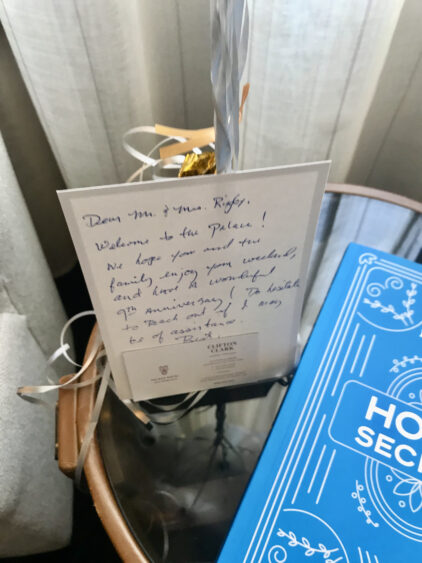 Dear Mr. & Mrs.
Welcome to the Palace!
We hope you and the
family enjoy your weekend,
and have a wonderful
9th Anniversary! Do hesitate
to Reach out if I may
be of assistance.
Best,
CLIFTON
CLARK
HO
SEC